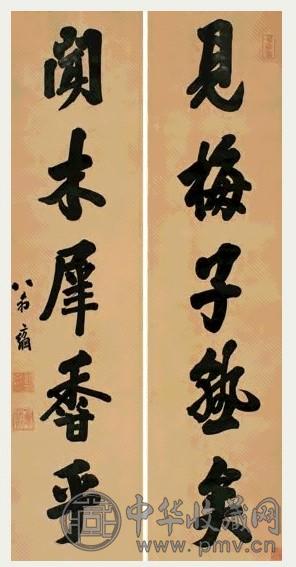 見梅子熟矣
聞木犀香乎
中华收藏网
www.pmv.cn